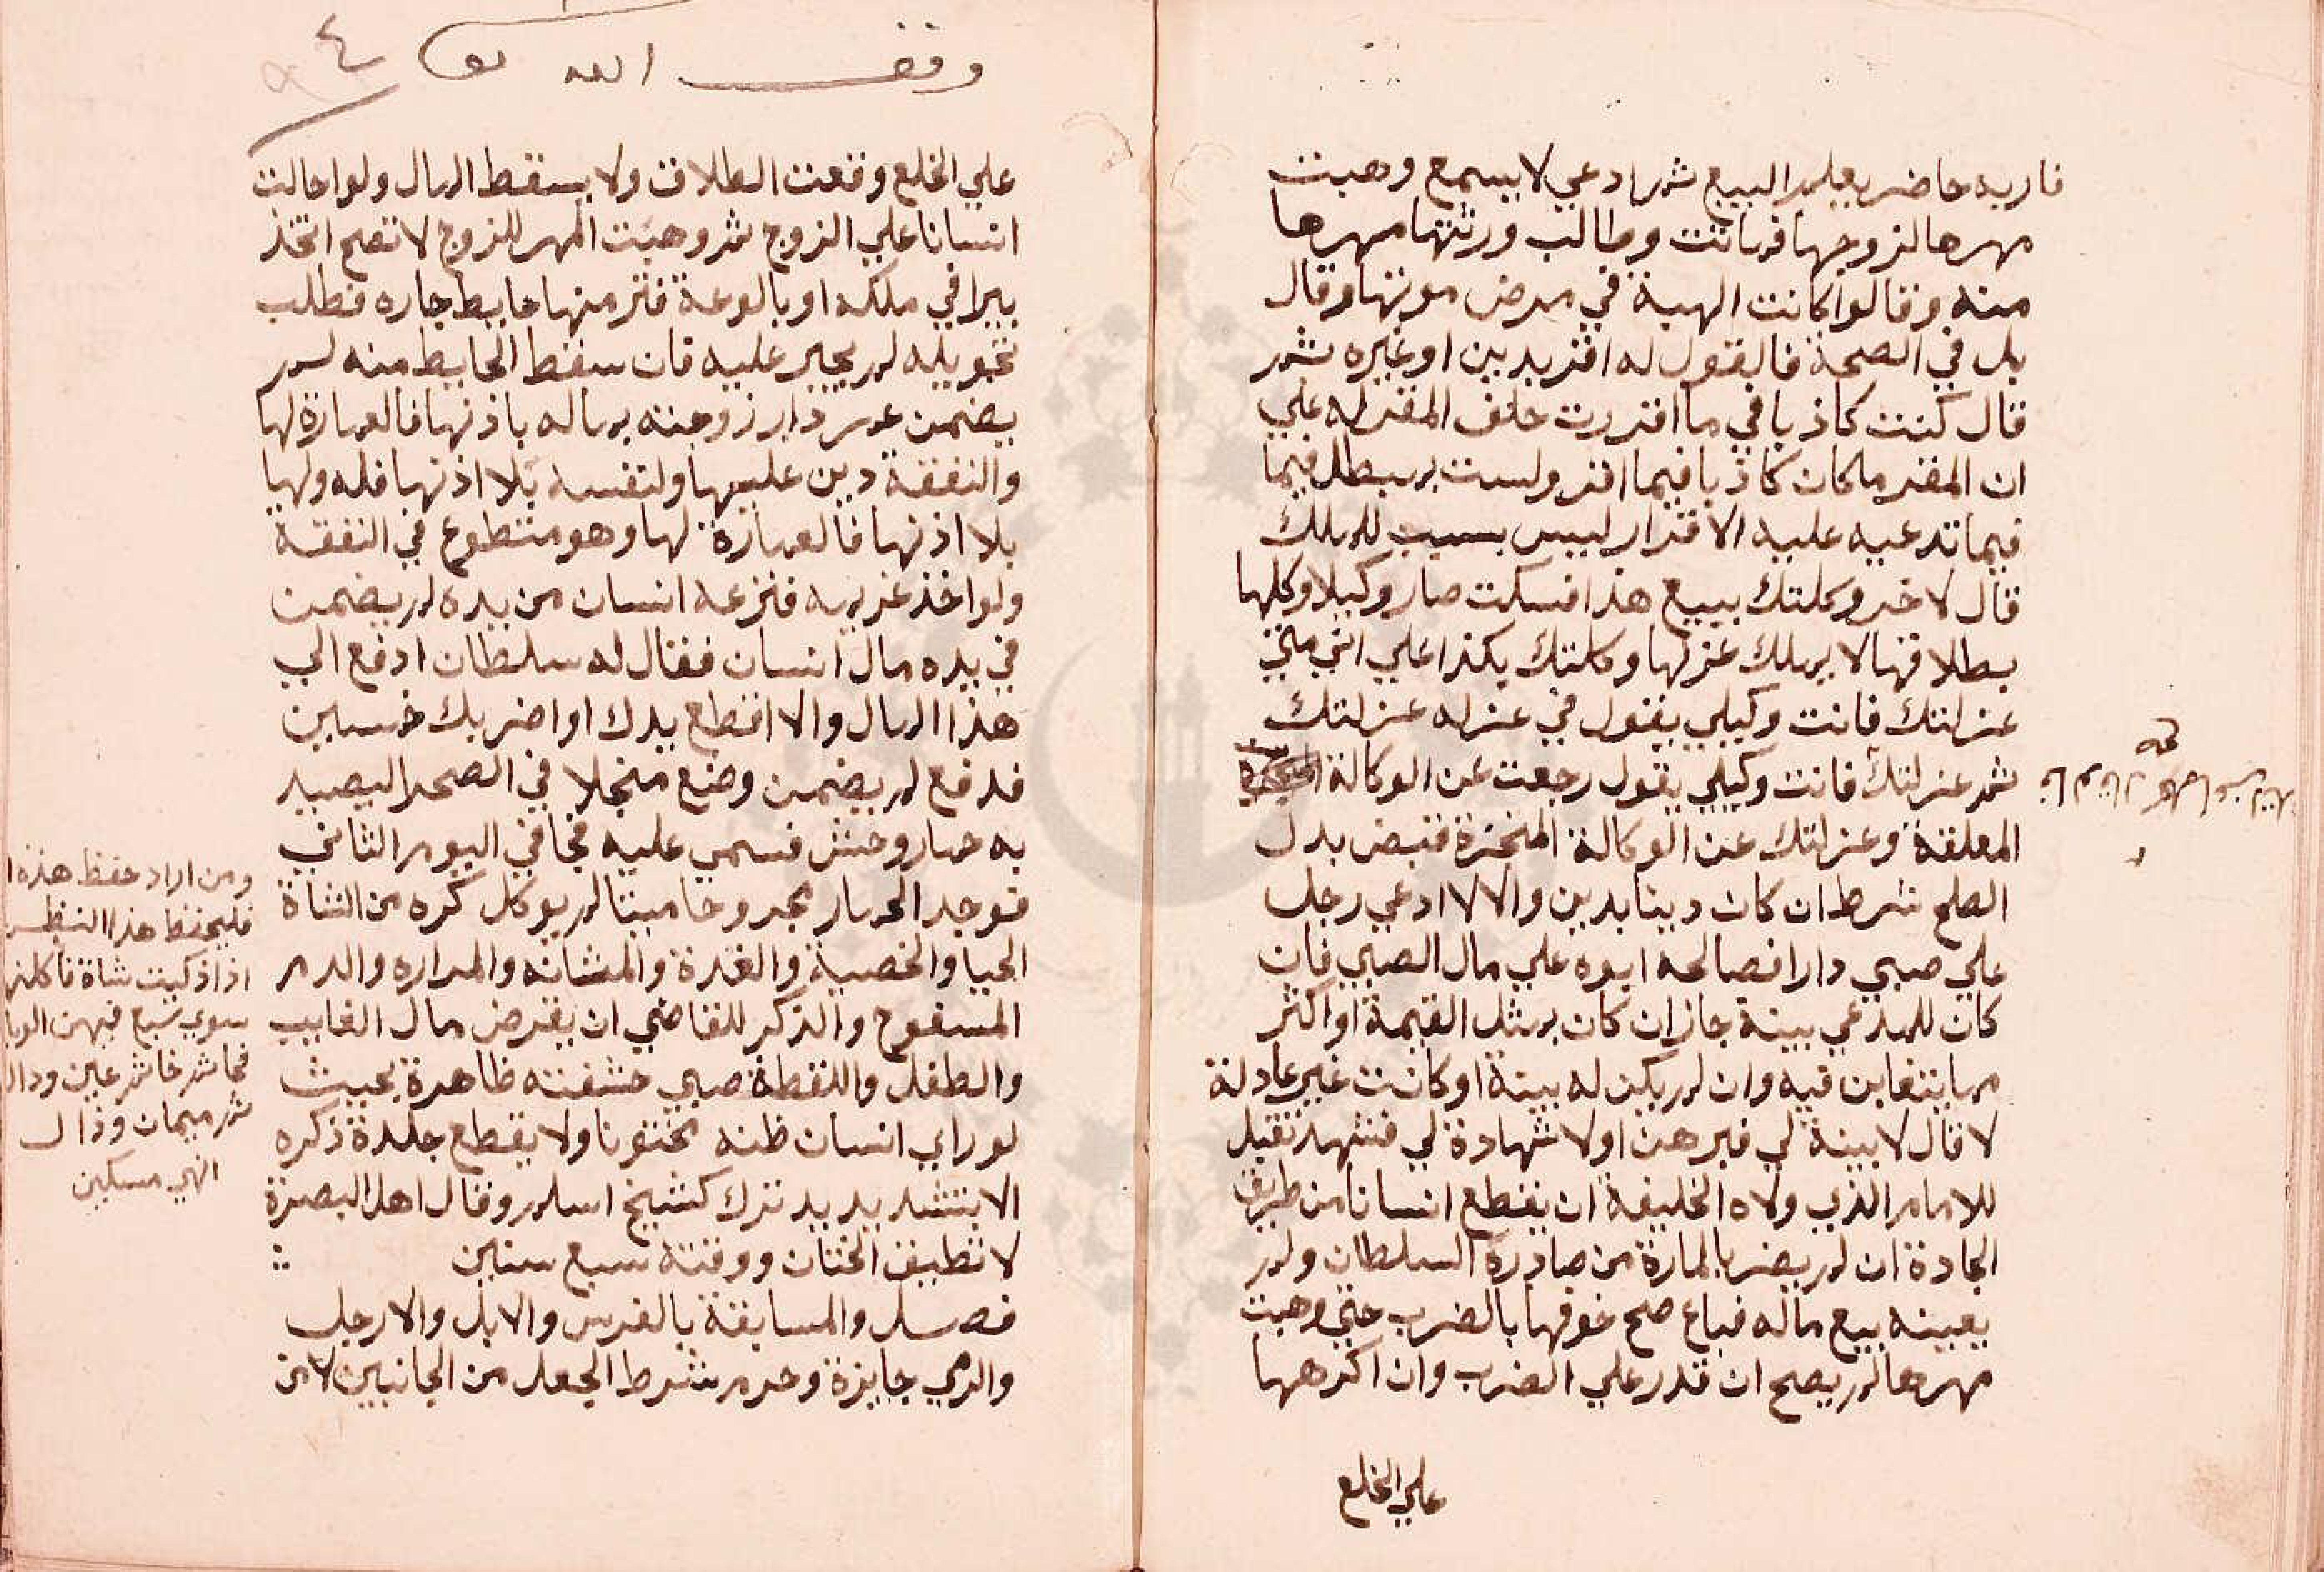 قاربه حاضر يعلم البيع ثم ادعي لا يسمع وهبت
مهرها لزوجها فماتت وطالب ورثتها مهرها
منه وقالوا كانت الهبة في مرض موتها وقال
بل في الصحة فالقول له اقر بدين او غيره ثم
قال كنت كاذبا في ما اقررت حلف المقر له علي
ان المقر ما كان كاذبا فيما اقر ولست بمبطل فيما
فيما تدعيه عليه الاقرار ليس بسبب للملك
قال لاخر وكلتك ببيع هذا فسكت صار وكيلا وكلها
بطلاقها لا يملك عزلها وكلتك بكذا علي اني متي
عزلتك فانت وكيلي يقول في عزله عزلتك
ثم عزلتك فانت وكيلي يقول رجعت عن الوكالة
المعلقة وعزلتك عن الوكالة المنجزة قبض بدل
الصلح شرط ان كان دينا بدين والا لا ادعي رجل
علي صبي دارا فصالحه ابوه علي مال الصبي فان
كان للمدعي بينة جاز ان كان بمثل القيمة او اكثر
مما يتغابن فيه وان لم يكن له بينة او كانت غير عادلة
لا قال لا بينة لي فبرهن او لا شهادة لي فشهد تقبل
للامام الذي ولاه الخليفة ان يقطع انسانا من طريق
الجادة ان لم يضر بالمارة من صادره السلطان ولم
يعينه بيع ماله فباع صح خوفها بالضرب حتي وهبت
مهرها لم يصح ان قدر علي الضرب وان اكرهها
علي الخلع
وقف الله تعا
٤
علي الخلع وقعت الطلاق ولا يسقط المال ولو احالت
انسانا علي الزوج ثم وهبت المهر للزوج لا تصح اتخذ
بيرا في ملكه او بالوعة فنز منها حايط جاره فطلب
تحويله لم يجبر عليه فان سقط الحايط منه لم
يضمن عمر دار زوجته بماله باذنها فالعمارة لها
والنفقة دين عليها ولنفسه بلا اذنها فله ولها
بلا اذنها فالعمارة لها وهو متطوع في النفقة
ولو اخذ غريمه فنزعه انسان من يده لم يضمن
في يده مال انسان فقال له سلطان ادفع الي
هذا المال والا اقطع يدك او اضربك خمسين
فدفع لم يضمن وضع منجلا في الصحرا ليصيد
به حمار وحش فسمي عليه فجا في اليوم الثاني
فوجد الحمار مجروحا ميتا لم يوكل كره من الشاة
الحيا والخصية والغدة والمثانه والمراره والدم
المسفوح والذكر للقاضي ان يقرض مال الغايب
والطفل واللقطة صبي حشفته ظاهرة بحيث
لو راي انسان ظنه مختونا ولا يقطع جلدة ذكره
الا بتشديد يد ترك كشيخ اسلم وقال اهل البصرة
لا تطيق الختان ووقته سبع سنين
فصل والمسابقة بالفرس والابل والارجل
والرمي جايزة وحرم شرط الجعل من الجانبين لا من
ومن اراد حفظ هذه ا
فليحفظ هذا النظم
اذا ذكيت شاة فاكلنها
سوي سبع فيهن الوبا
فحا ثم خا ثم عين ودال
ثم ميمان وذال
انهي مسكين